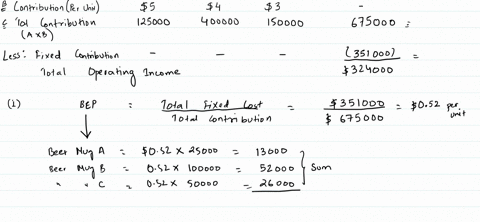 B Contribution (Per Unit) $5 $4 $3 -
C Total Contribution 125000 400000 150000 675000 =
(A x B)
Less: Fixed Contribution - - - (351000) =
Total Operating Income $324000
(2) BEP = Total Fixed Cost / Total Contribution = $351000 / $675000 = $0.52 per unit
Beer Mug A = $0.52 x 25000 = 13000
Beer Mug B = 0.52 x 100000 = 52000 } Sum
" " C = 0.52 x 50000 = 26000